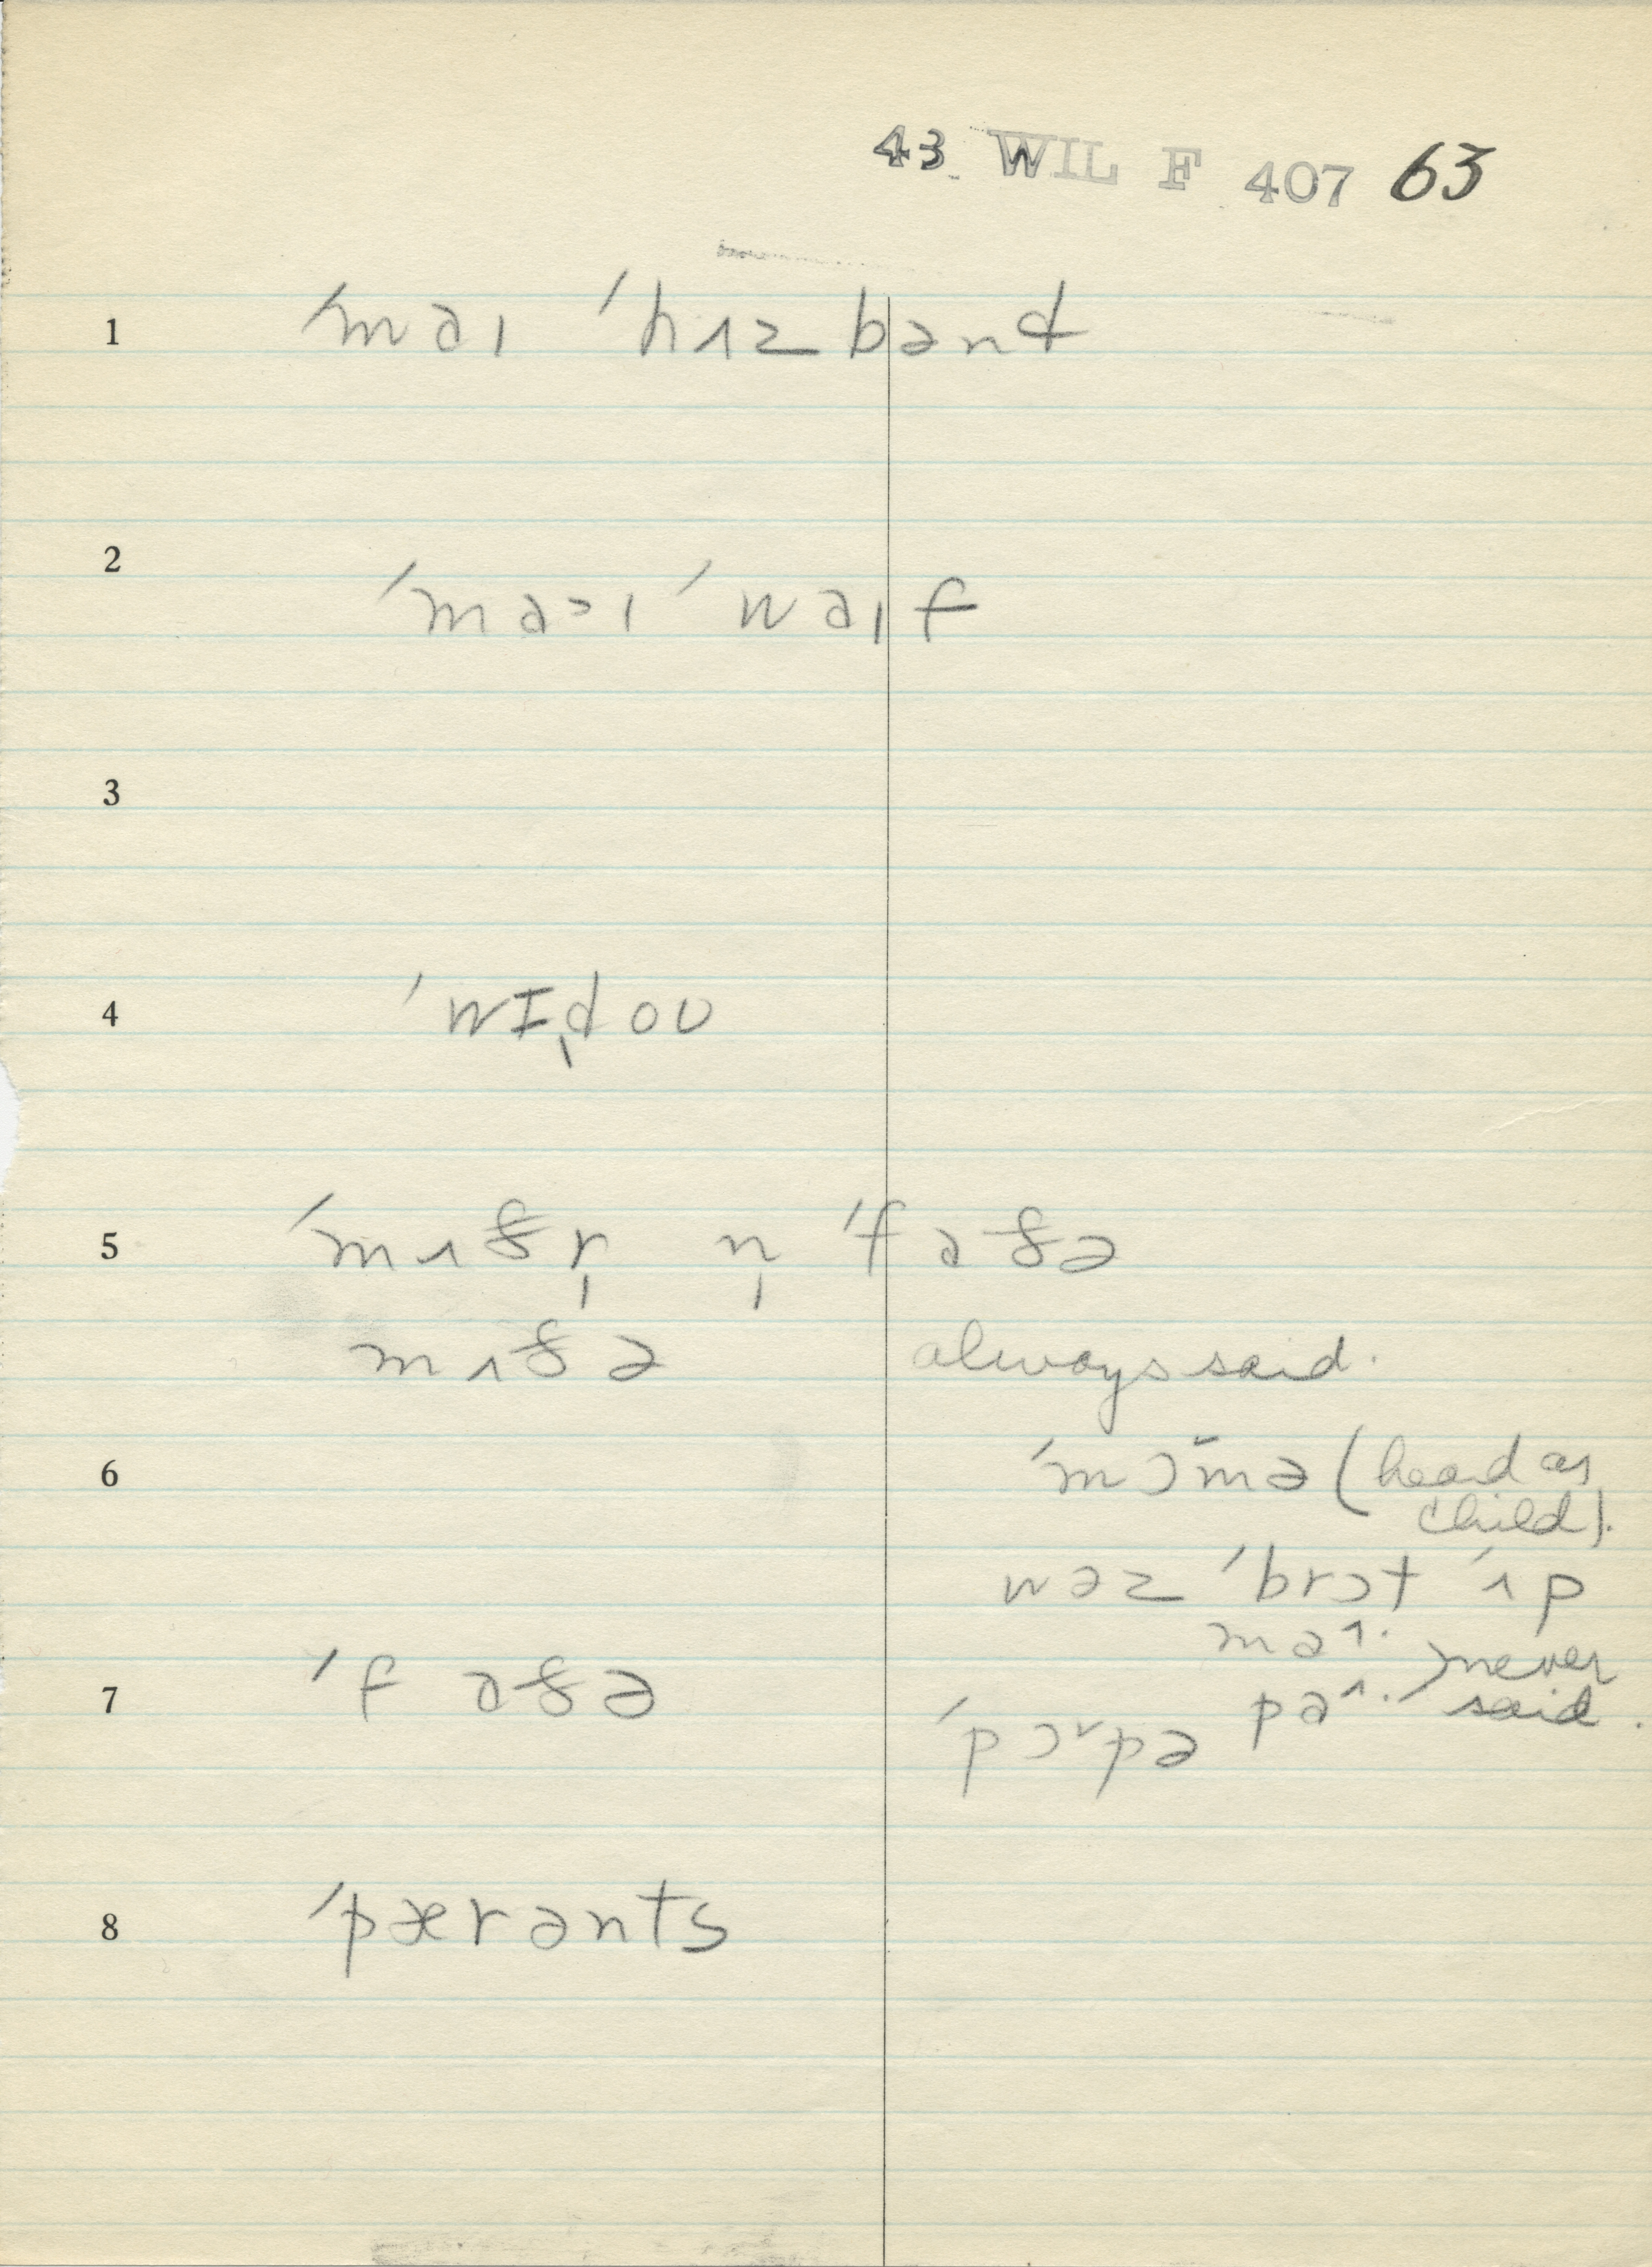 43. WIL F 407 63
1 ˈmaɪ ˈhʌzbənd
2 ˈma˃ɪ ˈwaɪf
3
4 ˈwɪ̩doʊ
5 ˈmʌðr̩ n̩ ˈfaðə
mʌðə always said.
6 ˈmɔ˘mə (heard as
child).
wəz ˈbrɔt ˈʌp
ma˄·
7 ˈfaðə pa˄· } never said.
ˈpɔ˅pə
8 ˈpærənts